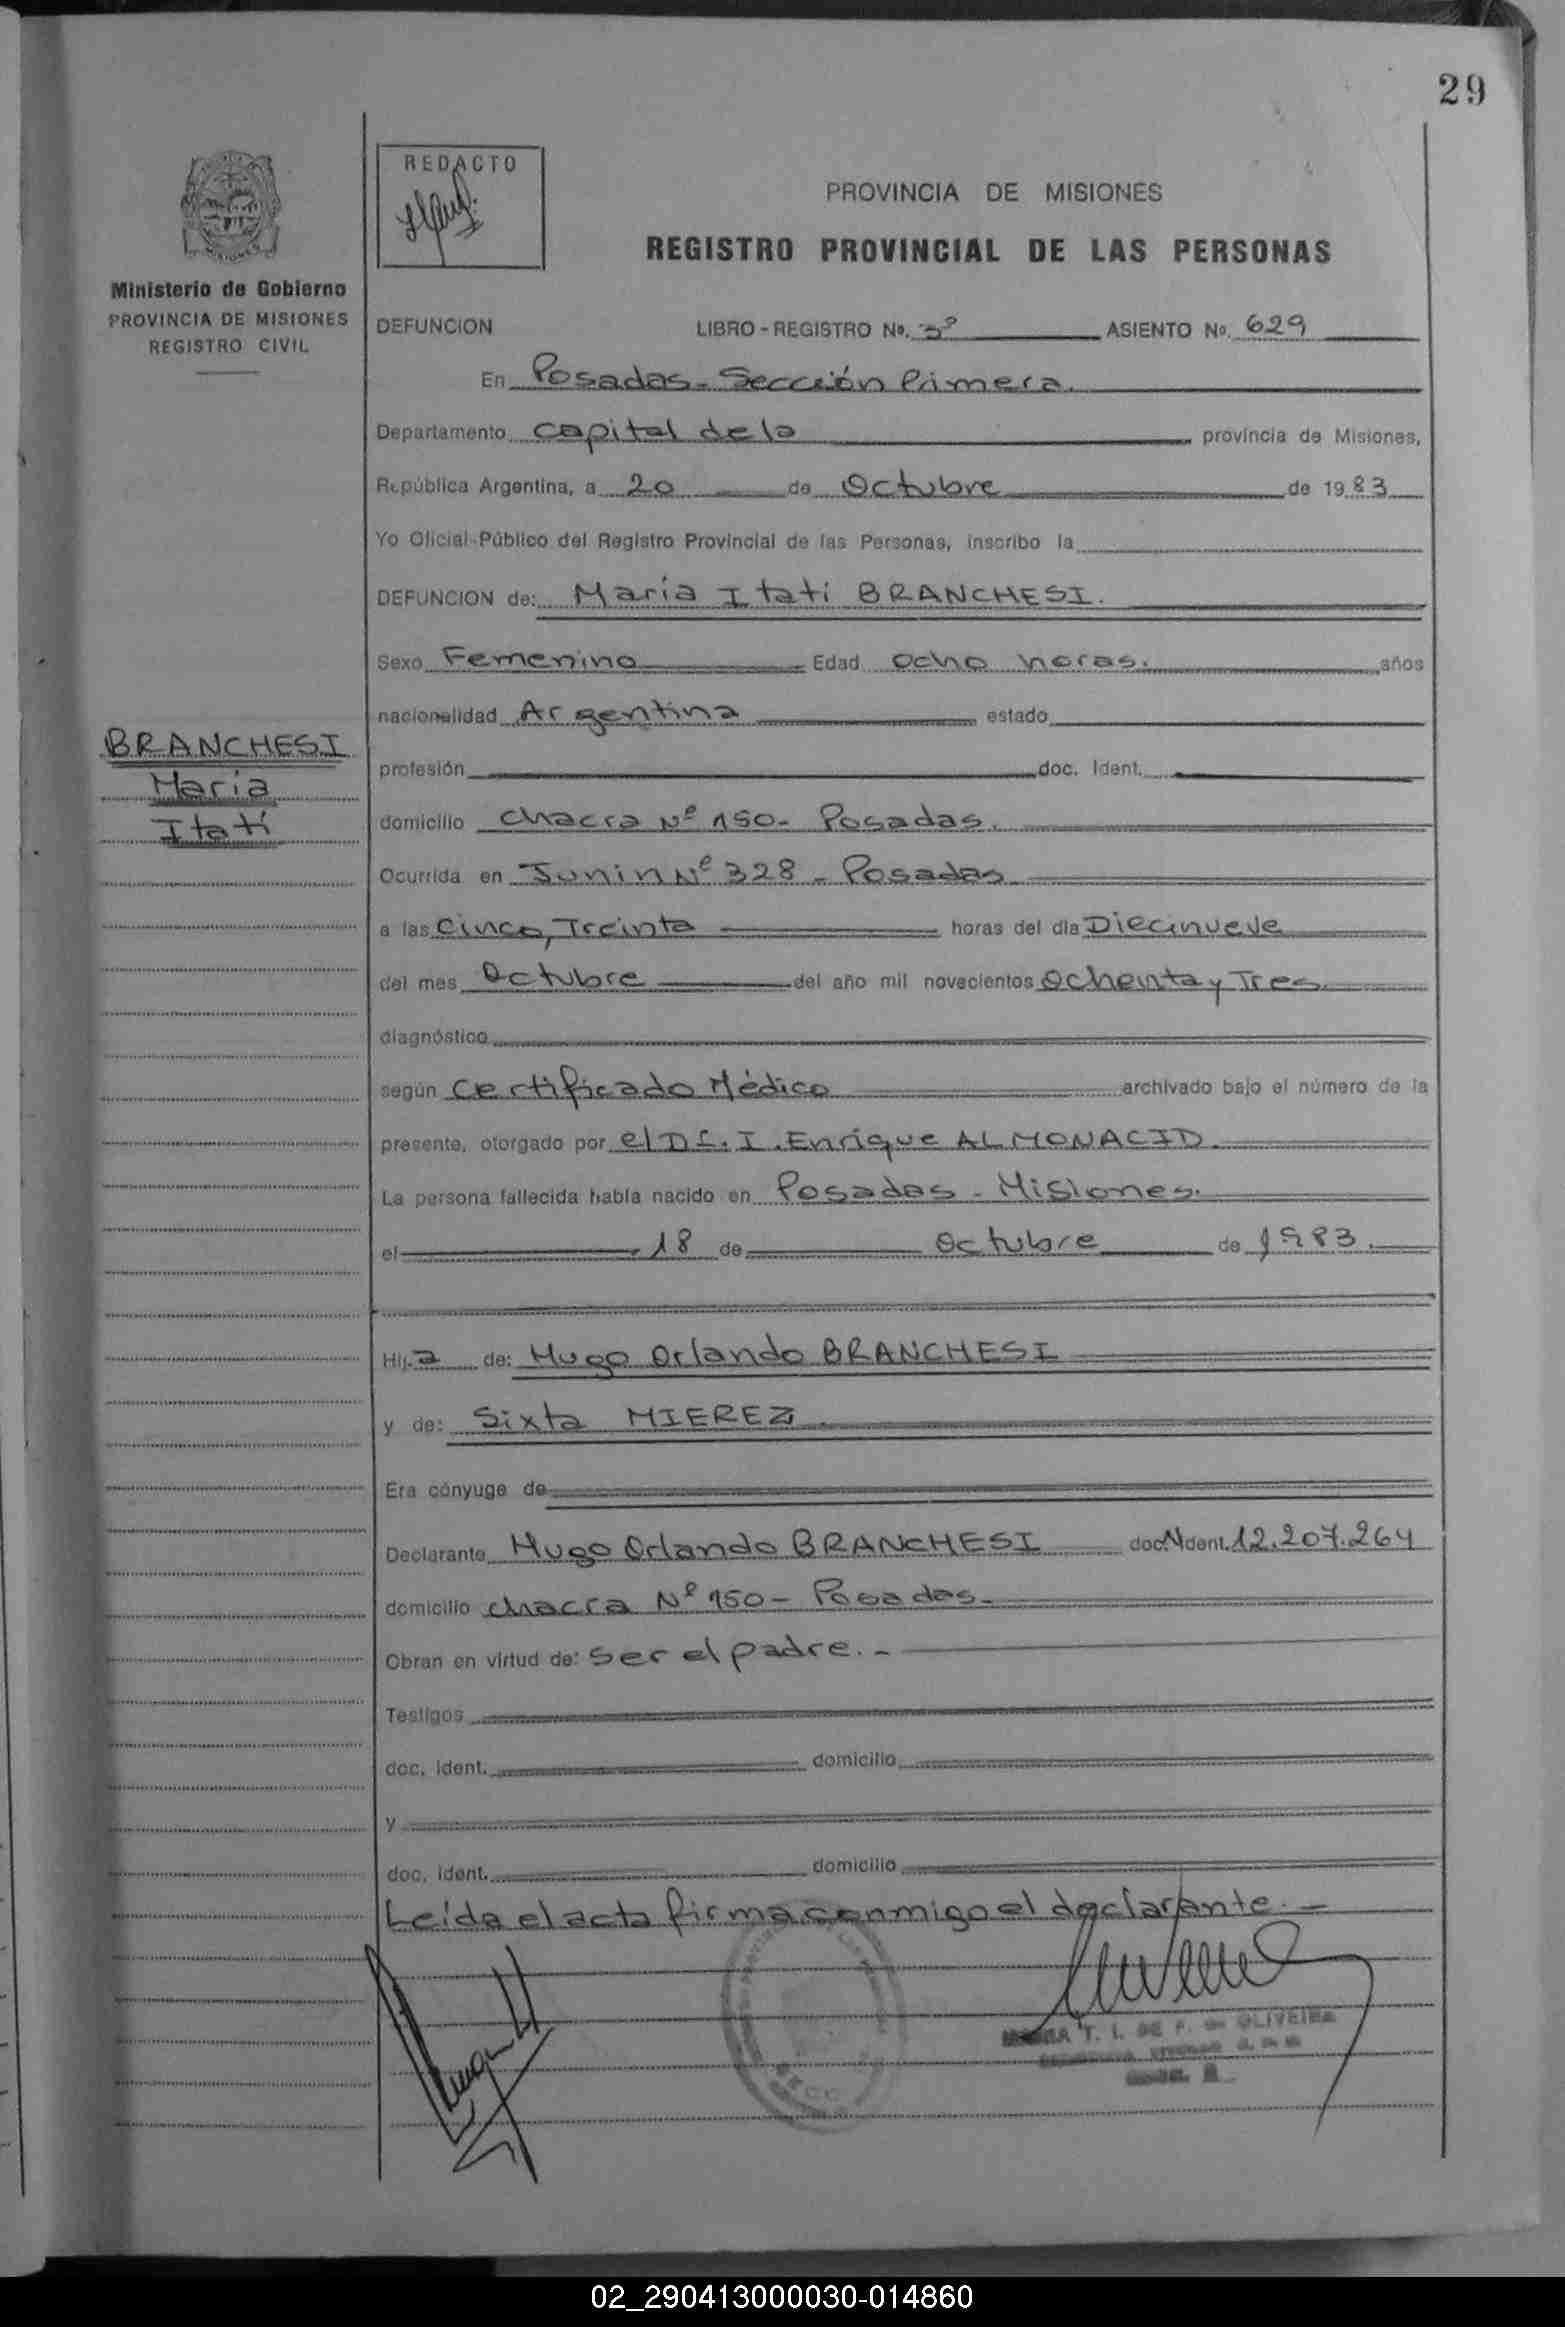 29
REDACTO
PROVINCIA DE MISIONES
REGISTRO PROVINCIAL DE LAS PERSONAS
Ministerio de Gobierno
PROVINCIA DE MISIONES
REGISTRO CIVIL
DEFUNCION LIBRO-REGISTRO Nº. 3º ASIENTO Nº. 629
En Posadas - Sección Primera.
Departamento capital de la provincia de Misiones,
República Argentina, a 20 de Octubre de 1983
Yo Oficial Público del Registro Provincial de las Personas, inscribo la
DEFUNCION de: María Itatí BRANCHESI.
Sexo Femenino Edad ocho horas. años
nacionalidad Argentina estado
BRANCHESI
María
Itatí
profesión doc. Ident.
domicilio chacra Nº 150- Posadas.
Ocurrida en Junin Nº 328 - Posadas
a las Cinco, Treinta horas del día Diecinueve
del mes Octubre del año mil novecientos Ochenta y Tres
diagnóstico
según Certificado Médico archivado bajo el número de la
presente, otorgado por el Dr. I. Enrique ALMONACID.
La persona fallecida había nacido en Posadas - Misiones.
el 18 de Octubre de 1983.
Hij a de: Hugo Orlando BRANCHESI
y de: Sixta MIEREZ.
Era cónyuge de
Declarante Hugo Orlando BRANCHESI doc. Ident. 12.207.264
domicilio chacra Nº 150- Posadas.
Obran en virtud de: Ser el padre.-
Testigos
doc. Ident. domicilio
y
doc. Ident. domicilio
Leída el acta firma conmigo el declarante.-
T. I. DE F. de OLIVEIRA
02_290413000030-014860